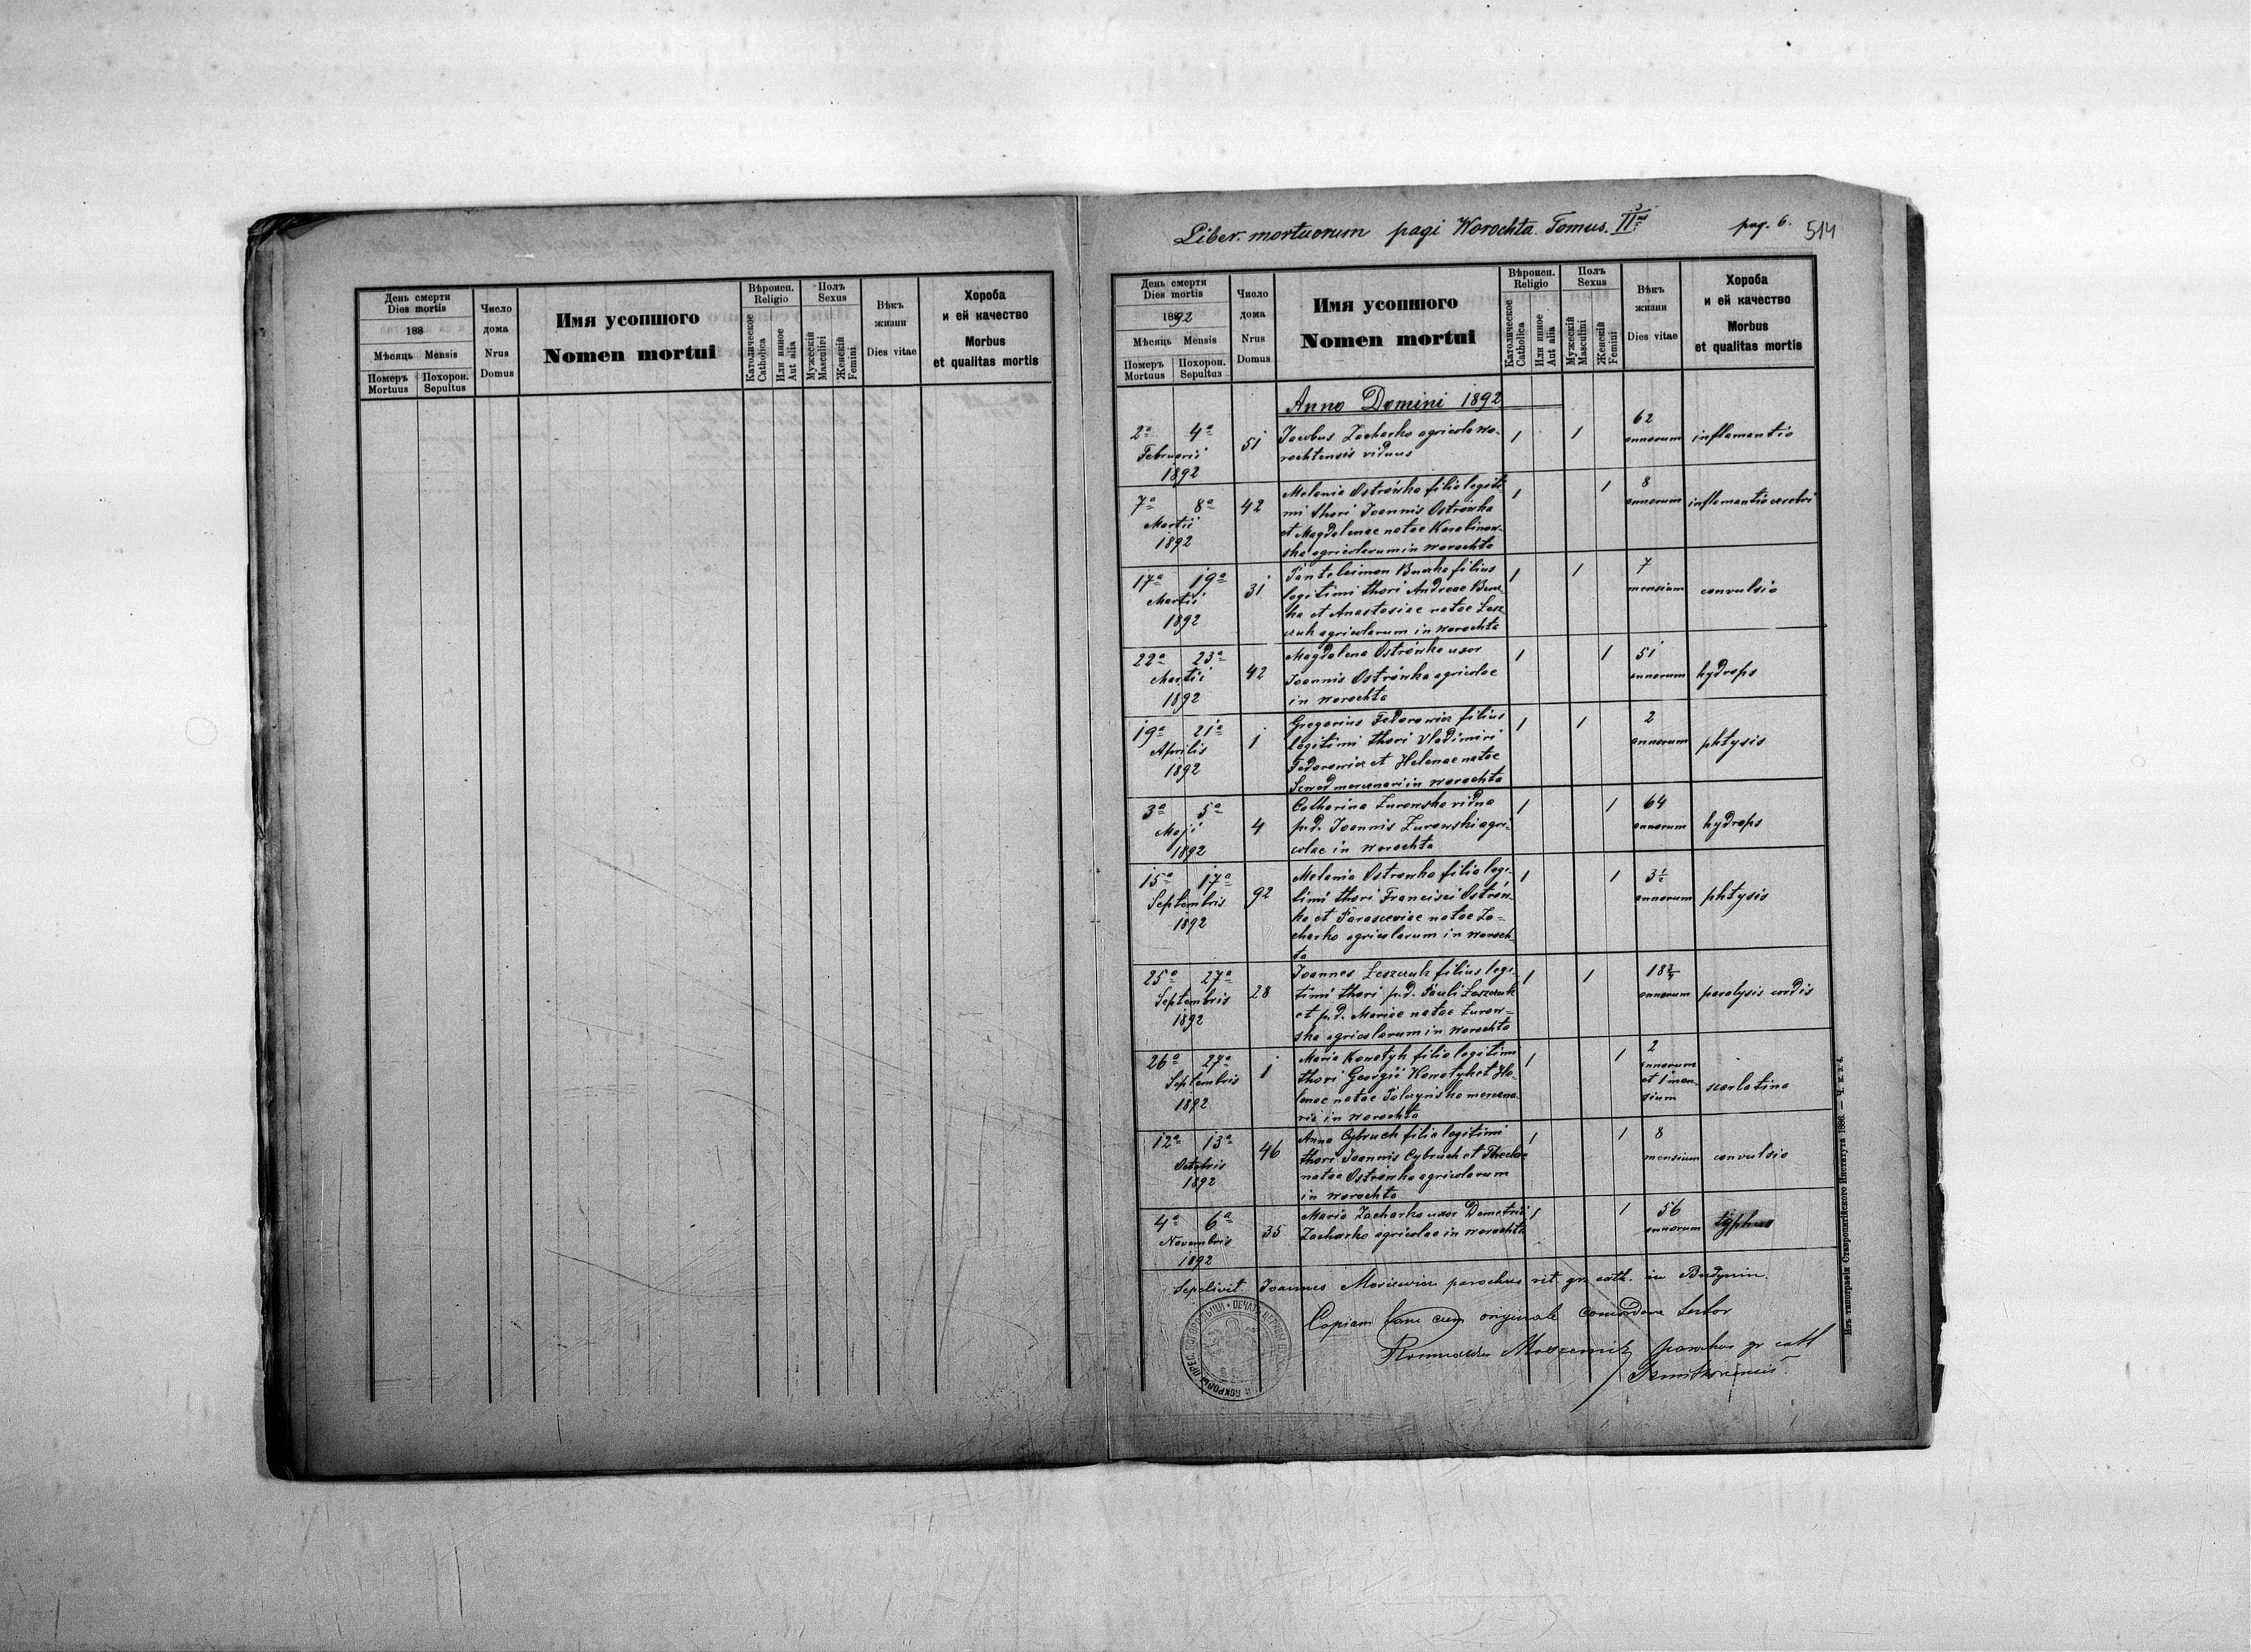 День смерти
Dies mortis
188
Мѣсяць Mensis
Померъ Mortuus
Похорон. Sepultus
Число дома Nrus Domus
Имя усопшого
Nomen mortui
Вѣроисп. Religio
Католическое Catholica
Или инное Aut alia
Полъ Sexus
Мужескій Masculini
Женскій Femini
Вѣкъ жизни Dies vitae
Хороба и ей качество
Morbus et qualitas mortis
Liber mortuorum pagi Worochta. Tomus. II pag. 6. 514
День смерти
Dies mortis
1892
Мѣсяць Mensis
Померъ Mortuus
Похорон. Sepultus
Число дома Nrus Domus
Имя усопшого
Nomen mortui
Вѣроисп. Religio
Католическое Catholica
Или инное Aut alia
Полъ Sexus
Мужескій Masculini
Женскій Femini
Вѣкъ жизни Dies vitae
Хороба и ей качество
Morbus et qualitas mortis
Anno Domini 1892
2a 4a Februarii 1892 51
Jacobus Zacharko agricola Wo-
rochtensis viduus
1 1 62 annorum inflamantio
7a 8a Martii 1892 42
Melania Ostrówka filia legiti
mi thori Joannis Ostrówka
et Magdalenae natae Karalinow-
ska agricolarum in Worochta
1 1 8 annorum inflamantio cerebri
17a 19a Martii 1892 31
Panteleimon Burka filius
legitimi thori Andreae Bur
ka et Anastasiae natae Lesz
czuk agricolarum in Worochta
1 1 7 mensium convulsio
22a 23a Martii 1892 42
Magdalena Ostrówka uxor
Joannis Ostrówka agricolae
in Worochta
1 1 51 annorum hydrops
19a 21a Aprilis 1892 1
Gregorius Fedorowicz filius
legitimi thori Vladimiri
Fedorowicz et Helenae natae
mercenarii in Worochta
1 1 2 annorum phtysis
3a 5a Maji 1892 4
Catharina Zurowska vidua
p.d. Joannis Zurowski agri-
colae in Worochta
1 1 64 annorum hydrops
15a 17a Septembris 1892 92
Melania Ostrowka filia legi-
timi thori Francisci Ostrów-
ka et Parasceviae natae Za=
charko agricolarum in Woroch
ta
1 1 3½ annorum phtysis
25a 27a Septembris 1892 28
Joannes Leszczuk filius legi-
timi thori p.d. Pauli Leszczuk
et p.d. Mariae natae Zurow=
ska agricolarum in Worochta
1 1 18¾ annorum paralysis cordis
26a 27a Septembris 1892 1
Maria Konotyk filia legitimi
thori Georgii Konotyk et He-
lenae natae mercena-
rii in Worochta
1 1 2 annorum et 1 men-
sium scarlatina
12a 13a Octobris 1892 46
Anna Cybruch filia legitimi
thori Joannis Cybruch et Theclae
natae Ostrówka agricolarum
in Worochta
1 1 8 mensium convulsio
4a 6a Novembris 1892 35
Maria Zacharko uxor Demetrii
Zacharko agricolae in Worochta
1 1 56 annorum typhus
Sepelivit Joannes parochus rit. gr. cath. in Budynin.
Copiam hanc cum originale
parochus gr cath
Изъ типографіи Ставропигійского Института 1886. — Ч. к. з. 4.